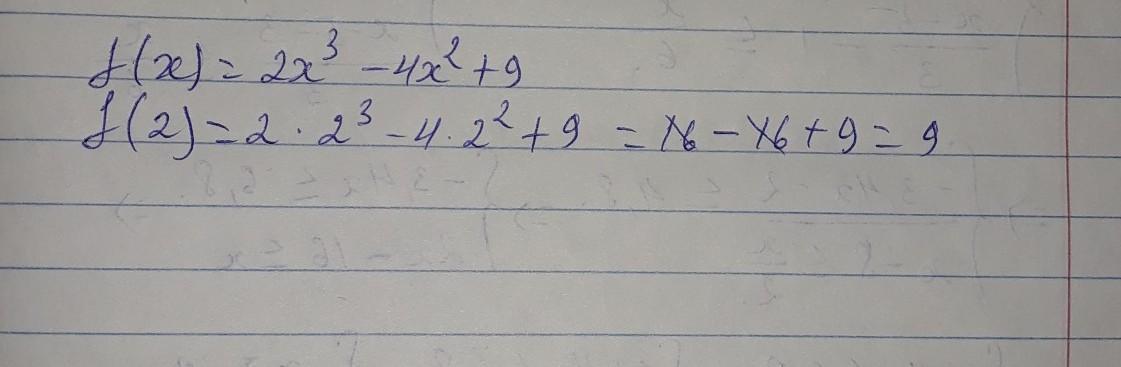 f(x) = 2x³ - 4x² + 9
f(2) = 2 · 2³ - 4 · 2² + 9 = 16 - 16 + 9 = 9